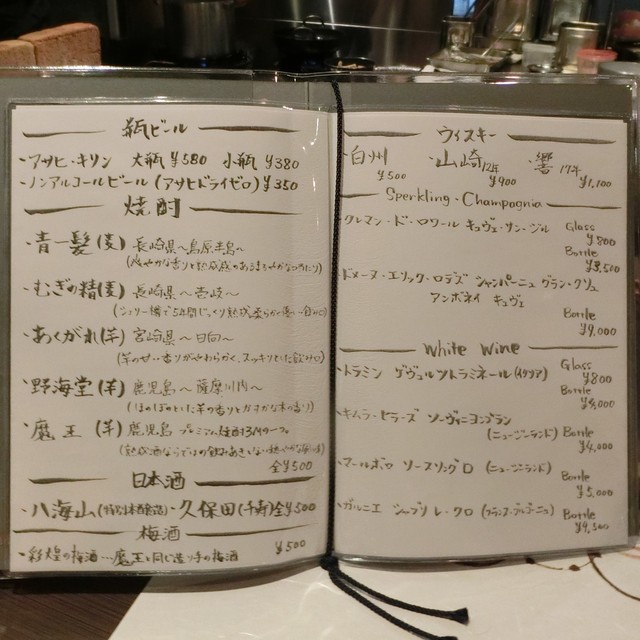 瓶ビール
・アサヒ・キリン 大瓶 ¥580 小瓶 ¥380
・ノンアルコールビール(アサヒドライゼロ) ¥350
焼酎
・青一髪(麦) 長崎県〜島原半島〜
・むぎの精(麦) 長崎県〜壱岐〜
・あくがれ(芋) 宮崎県〜日向〜
(芋の甘い香りがやわらかく、スッキリとした飲み口)
・野海棠(芋) 鹿児島〜薩摩川内〜
(ほのぼのとした芋の香りとかすかな木の香り)
・魔王(芋) 鹿児島 プレミアム焼酎
全¥500
日本酒
・八海山(特別本醸造)・久保田(千寿)全¥500
梅酒
・彩煌の梅酒…魔王と同じ造り手の梅酒 ¥500
ウィスキー
・白州 ¥500 ・山崎12年 ¥900 ・響17年 ¥1,100
Sperkling・Champagnia
クレマン・ド・ロワール キュヴェ・サン・ジル Glass ¥800
Bottle ¥3,500
ドメーヌ・エリック・ロデズ シャンパーニュ グラン・クリュ
アンボネイ キュヴェ
Bottle ¥9,000
White Wine
・トラミン ゲヴュルツトラミネール(イタリア) Glass ¥800
Bottle
・キムラ・セラーズ ソーヴィニヨンブラン
(ニュージーランド) Bottle ¥4,000
・マールボロ (ニュージーランド) Bottle ¥5,000
・ガルニエ シャブリ レ・クロ (フランス・ブルゴーニュ) Bottle ¥9,500